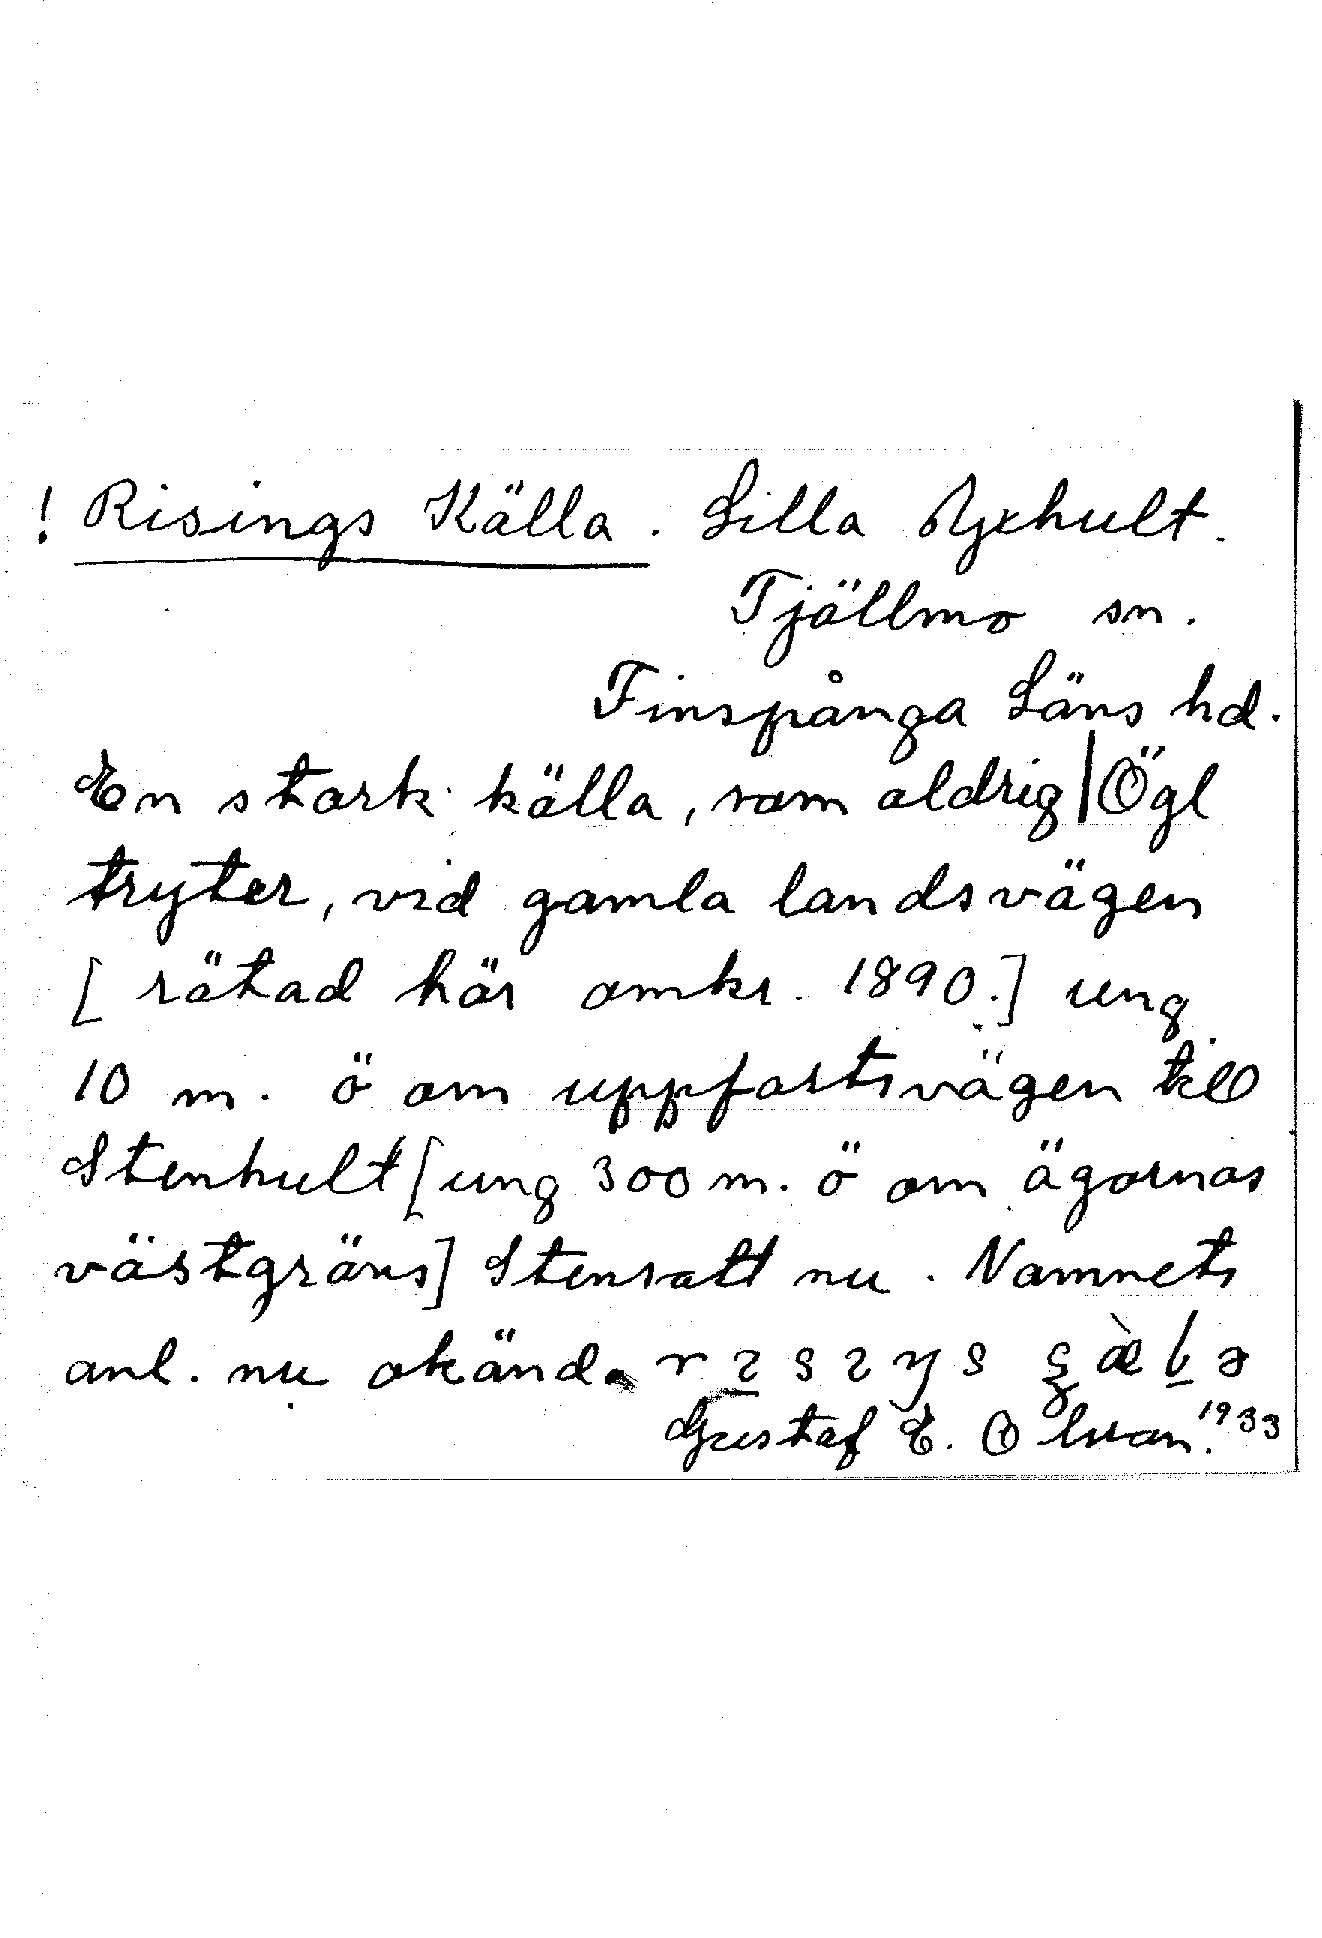 ! Risings Källa. Lilla Yxhult.
Tjällmo sn.
Finspånga Läns hd.
En stark källa, som aldrig | Ögl
tryter, vid gamla landsvägen
[rätad här omkr. 1890.] ung.
10 m. ö om uppfartsvägen till
Stenhult [ung 300 m. ö om ägornas
västgräns] Stensatt nu. Namnets
anl. nu okänd.
Gustaf E. Olsson. 1933